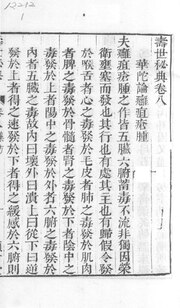 12212
1
壽世秘典卷八
華陀論癰疽瘡腫
夫癰疽瘡腫之作皆五臟六腑蓄毒不流非獨因榮
衛壅塞而發也其行也有處其主也有歸假令發
於喉舌者心之毒發於皮毛者肺之毒發於肌肉
者脾之毒發於骨髓者腎之毒發於下者陰中之
毒發於上者陽中之毒發於外者六腑之毒發於
內者五臟之毒故內曰壞外曰潰上曰從下曰逆
發於上者得之速發於下者得之緩感於六腑則